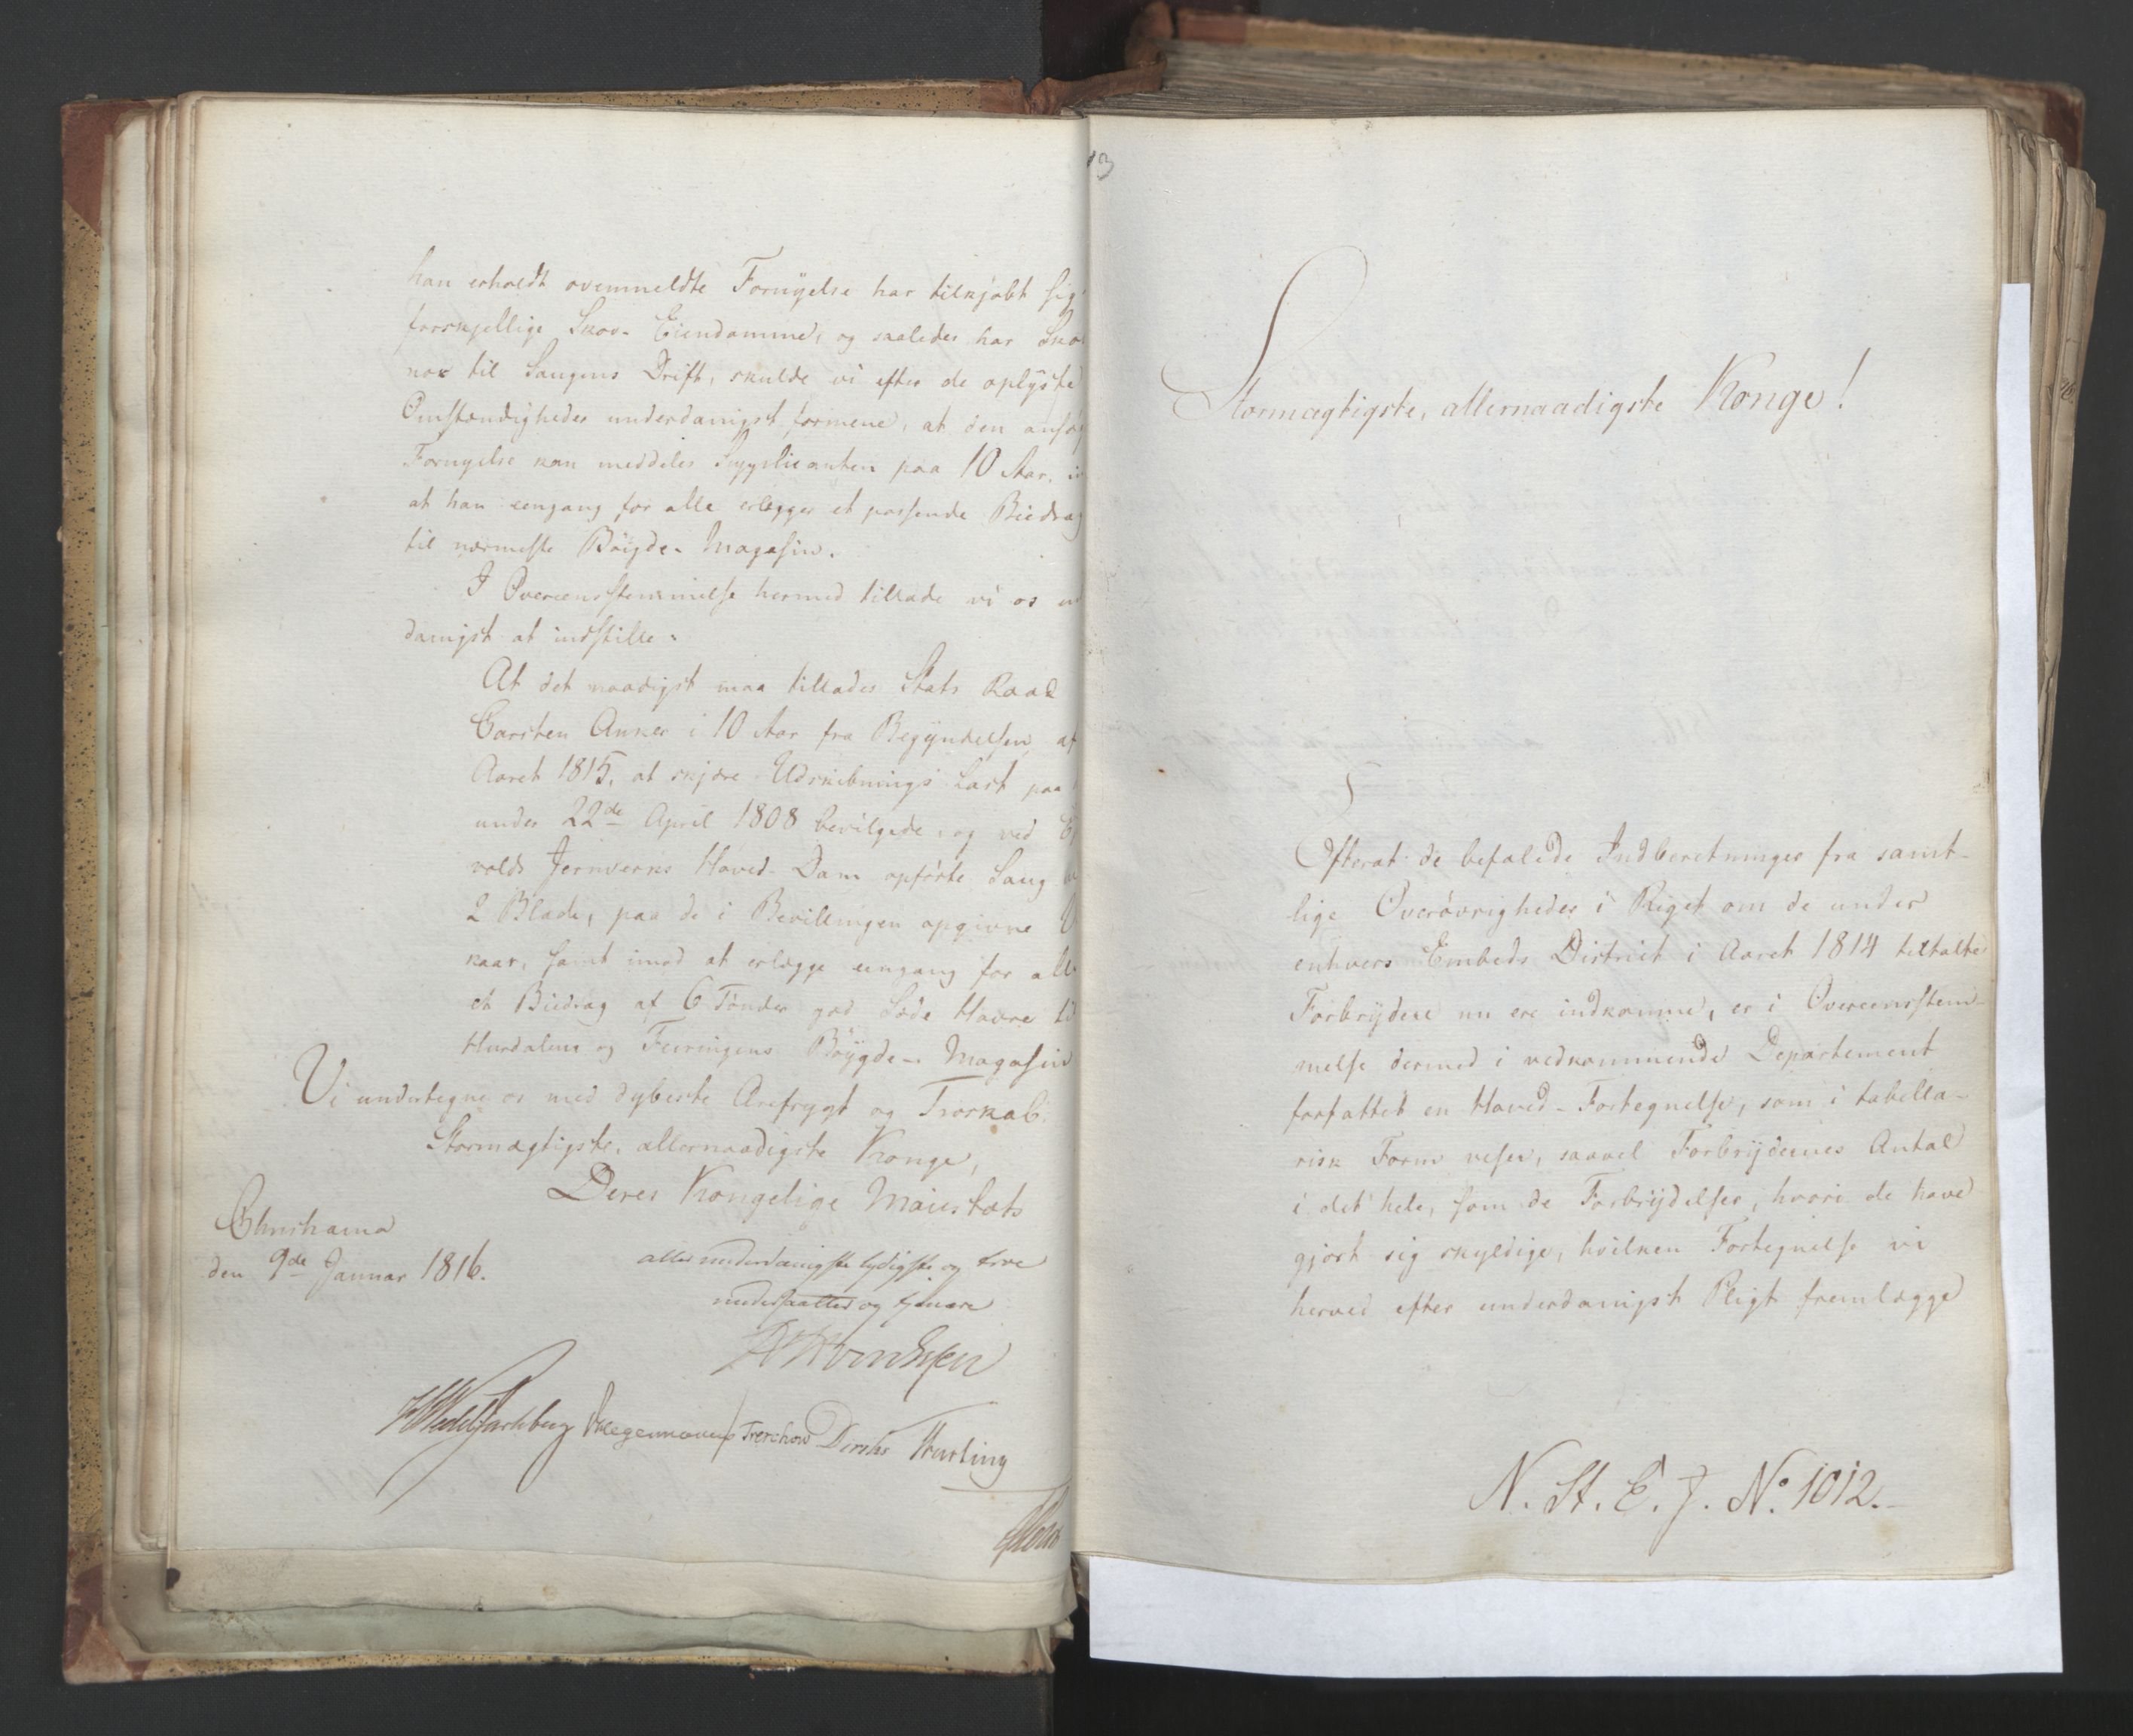 han erholdt ovenmeldte Fornyelse har tilkjøbt sig
forskjellige Skov-Eiendomme, og saaledes har
nok til Saugens Drift, skulde vi efter de oplyste
Omstændigheder underdanigst formene, at den
Fornyelse kan meddeles Supplicanten paa 10 Aar,
at han eengang for alle erlægger et passende Biedrag
til nærmeste Bøigde-Magasin.
I Overeensstemmelse hermed tillade vi os
danigst at indstille:
At det naadigst maa tillades Stats Raad
Carsten Anker i 10 Aar fra Begyndelsen af
Aaret 1815, at skjære Udskibnings Last paa
under 22de April 1808 bevilgede, og ved
volds Jernverks Hoved-Dam opførte Saug
2 Blade, paa de i Bevillingen opgivne
kaar, samt imod at erlægge eengang for alle
et Biedrag af 6 Tønder god Søde Havre til
Hurdalens og Feiringens Bøygde-Magasin
Vi undertegne os med dybeste Ærefrygt og Troskab
Stormægtigste, allernaadigste Konge,
Deres Kongelige Majestæts
Christiania
den 9de Januar 1816.
allerunderdanigste lydigste og troe
undersaatter og tjenere
HWedelJarlsberg Treschow Diriks
13
Stormægtigste, allernaadigste Konge!
Efterat de befalede Indberetninger fra samt-
lige Overøvrigheder i Riget om de under
enhvers Embeds District i Aaret 1814 tiltalte
Forbrydere nu ere indkomne, er i Overeensstem-
melse dermed i vedkommende Departement
forfattet en Hoved-Fortegnelse, som i tabella-
risk Form viser, saavel Forbrydernes Antal
i det hele, som de Forbrydelser, hvori de have
gjort sig skyldige, hvilken Fortegnelse vi
herved efter underdanigst Pligt fremlægge
N. St. E. J. No. 1012.